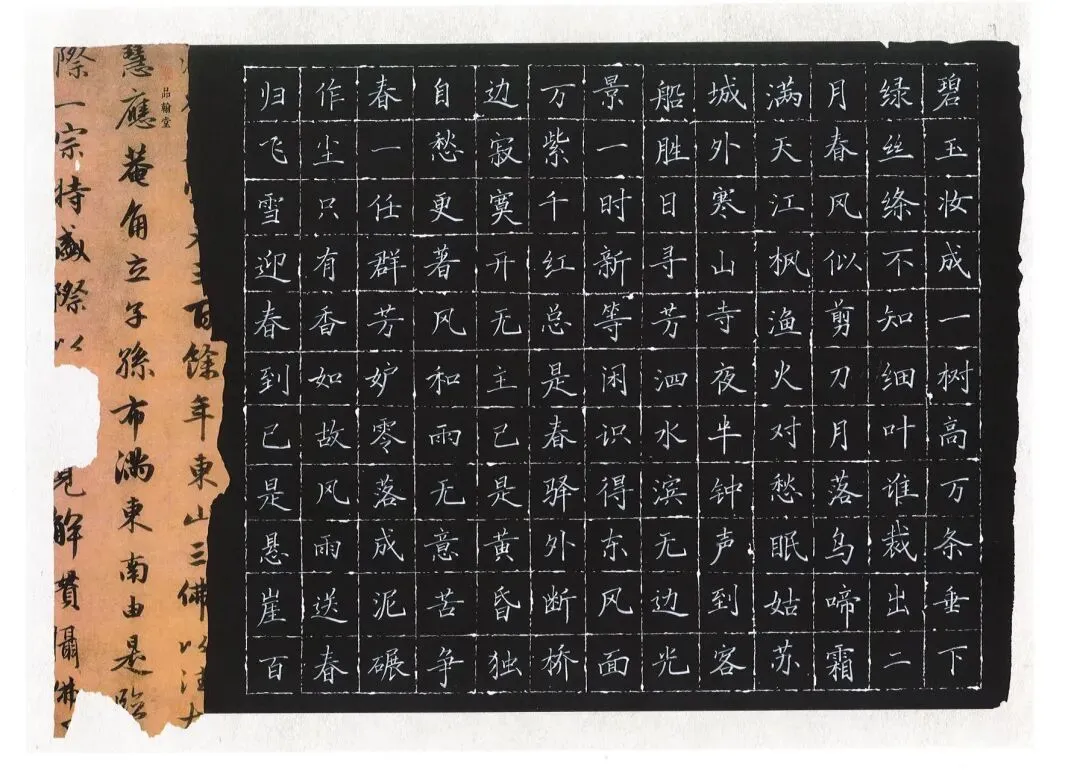 碧玉妆成一树高万条垂下
绿丝绦不知细叶谁裁出二
月春风似剪刀月落乌啼霜
满天江枫渔火对愁眠姑苏
城外寒山寺夜半钟声到客
船胜日寻芳泗水滨无边光
景一时新等闲识得东风面
万紫千红总是春驿外断桥
边寂寞开无主已是黄昏独
自愁更著风和雨无意苦争
春一任群芳妒零落成泥碾
作尘只有香如故风雨送春
归飞雪迎春到已是悬崖百
三百餘年東山三佛以法
品翰堂
慧應菴角立子孫布满東南由是臨
際一宗特盛際以見解貫攝佛